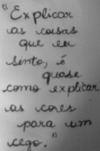 "Explicar
as coisas
que eu
sinto, é
quase
como explicar
as cores
para um
cego."